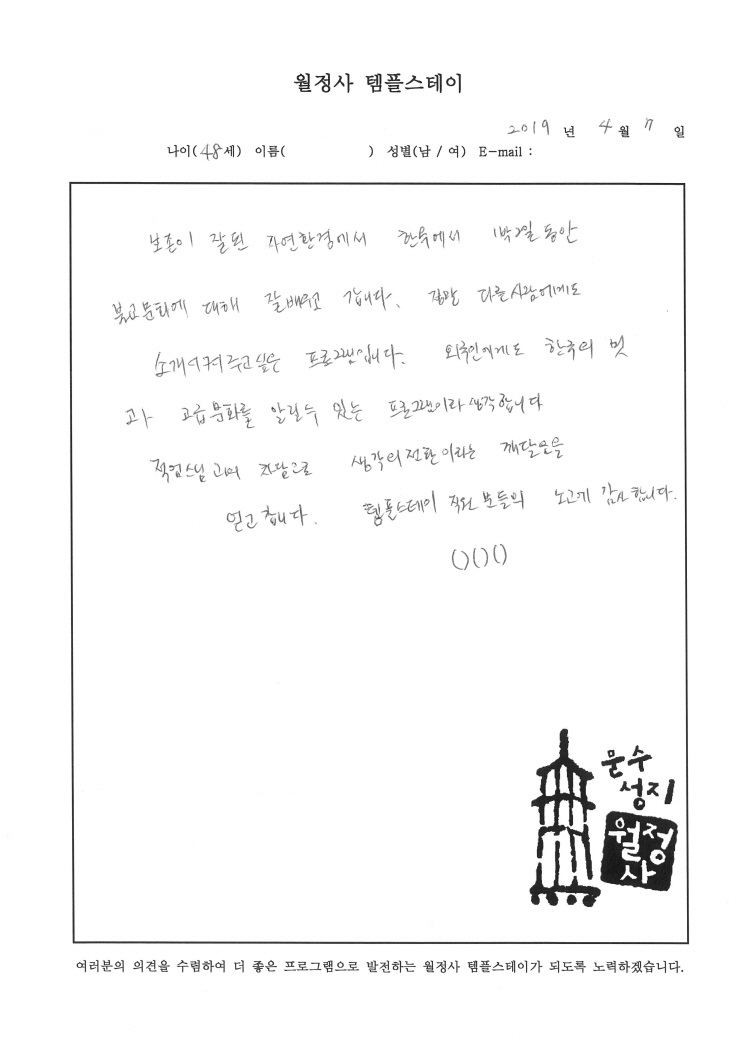 월정사 템플스테이
2019 년 4 월 7 일
나이(48세) 이름( ) 성별(남 / 여) E-mail :
보존이 잘된 자연환경에서 한옥에서 1박2일 동안
불교문화에 대해 잘배우고 갑니다. 정말 다른사람에게도
소개시켜주고싶은 프로그램입니다. 외국인에게도 한국의 멋
과 고급문화를 알릴수 있는 프로그램이라 생각합니다
생각의전환이라는 깨달음을
얻고 갑니다. 템플스테이 직원 분들의 노고에 감사합니다.
()()()
문수
성지
월정
사
여러분의 의견을 수렴하여 더 좋은 프로그램으로 발전하는 월정사 템플스테이가 되도록 노력하겠습니다.